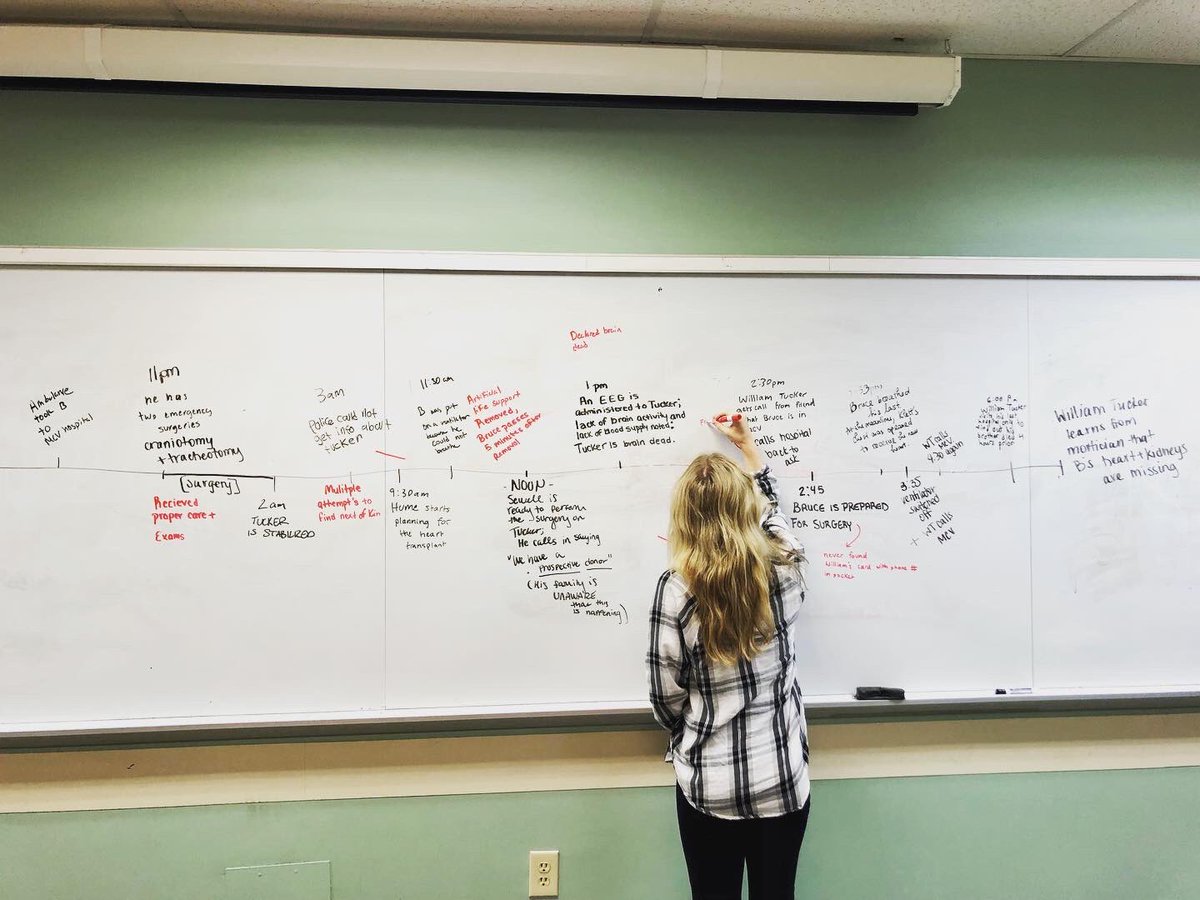 Ambulance
took B
to
MCV Hospital
11pm
he has
two emergency
surgeries
craniotomy
+ tracheotomy
[surgery]
Recieved
proper care +
Exams
2am
TUCKER
IS STABILIZED
3am
Police could not
get info about
Tucken
Mulitple
attempt's to
find next of Kin
9:30am
Hume starts
planning for
the heart
transplant
11:30am
B was put
on a
because he
could not
breathe
Artificial
life support
Removed,
Bruce passes
5 minutes after
removal
- NOON -
Sewell is
ready to perform
the surgery on
Tucker;
He calls in saying
"We have a
prospective donor"
(His family is
UNAWARE
that this
is happening)
Declared brain
dead
1 pm
An EEG is
administered to Tucker;
lack of brain activity and
lack of blood supply noted.
Tucker is brain dead.
2:30pm
William Tucker
gets call from friend
that Bruce is in
MCV
calls hospital
back to
ask
2:45
BRUCE IS PREPARED
FOR SURGERY
never found
William's card with phone #
in pocket
Bruce breathed
his last
3:35
ventilator
switched
off
+ WT calls
MCV
WT calls
4:30 again
6:00 p
William Tucker
find out his
brother died
hours prior
William Tucker
learns from
mortician that
B's heart + kidneys
are missing